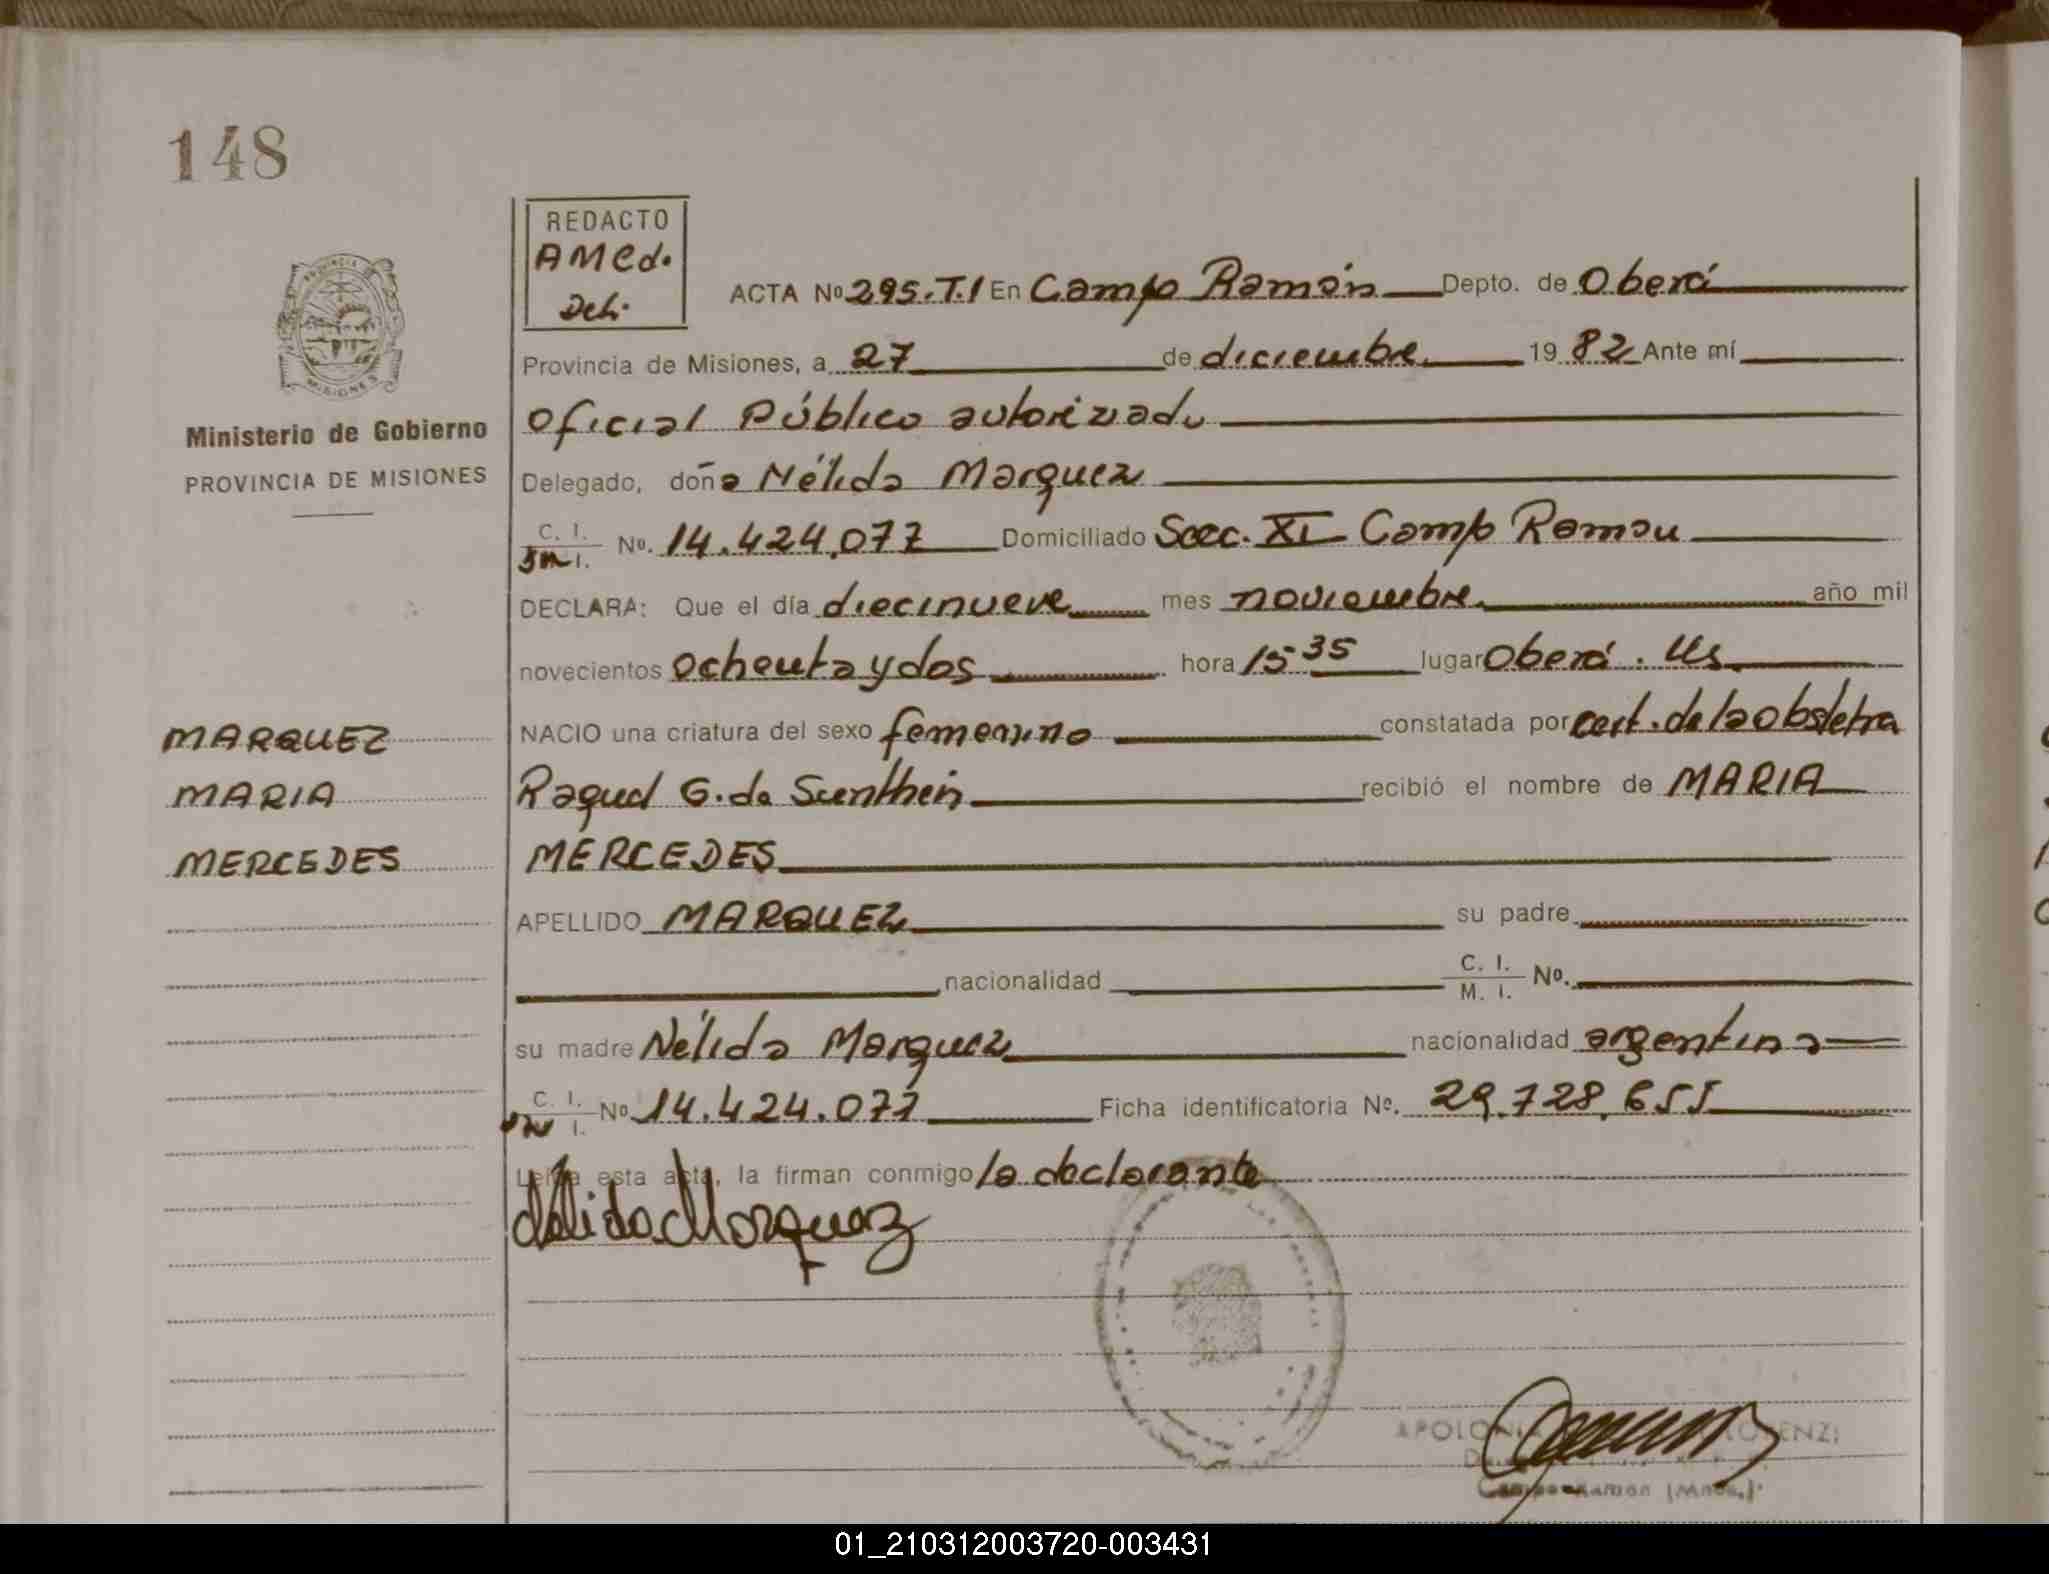 148
REDACTO
AMCd.
Del.
PROVINCIA DE
MISIONES
Ministerio de Gobierno
PROVINCIA DE MISIONES
ACTA Nº 295.T.I En Campo Ramón Depto. de Oberá
Provincia de Misiones, a 27 de diciembre 19 82 Ante mí
Oficial Público autorizado
Delegado, doña Nélida Marquez
C. I.
I. No. 14.424.077 Domiciliado Secc. XI Campo Ramon
DECLARA: Que el día diecinueve mes noviembre año mil
novecientos ochenta y dos hora 15 35 lugar Oberá . Ms
NACIO una criatura del sexo femenino constatada por cert. de la obstetra
Raquel G. de recibió el nombre de MARIA
MERCEDES
APELLIDO MARQUEZ su padre
nacionalidad C. I.
M. I. Nº.
su madre Nélida Marquez nacionalidad argentina
C. I.
I. Nº 14.424.077 Ficha identificatoria Nº. 29.728.655
Leída esta acta, la firman conmigo la declarante
Nélida Marquez
MARQUEZ
MARIA
MERCEDES
APOLONIA
Campo Ramon (Mnes.)
01_210312003720-003431